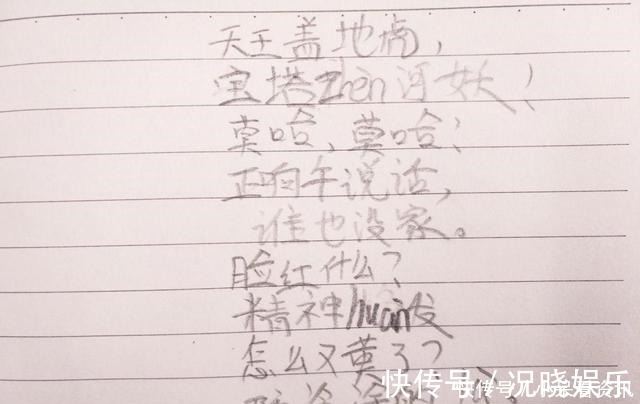 天王盖地虎,
宝塔zhèn河妖!
莫哈,莫哈!
正晌午说话,
谁也没家。
脸红什么?
精神huàn发
怎么又黄了?
涂
快传号/况晓娱乐